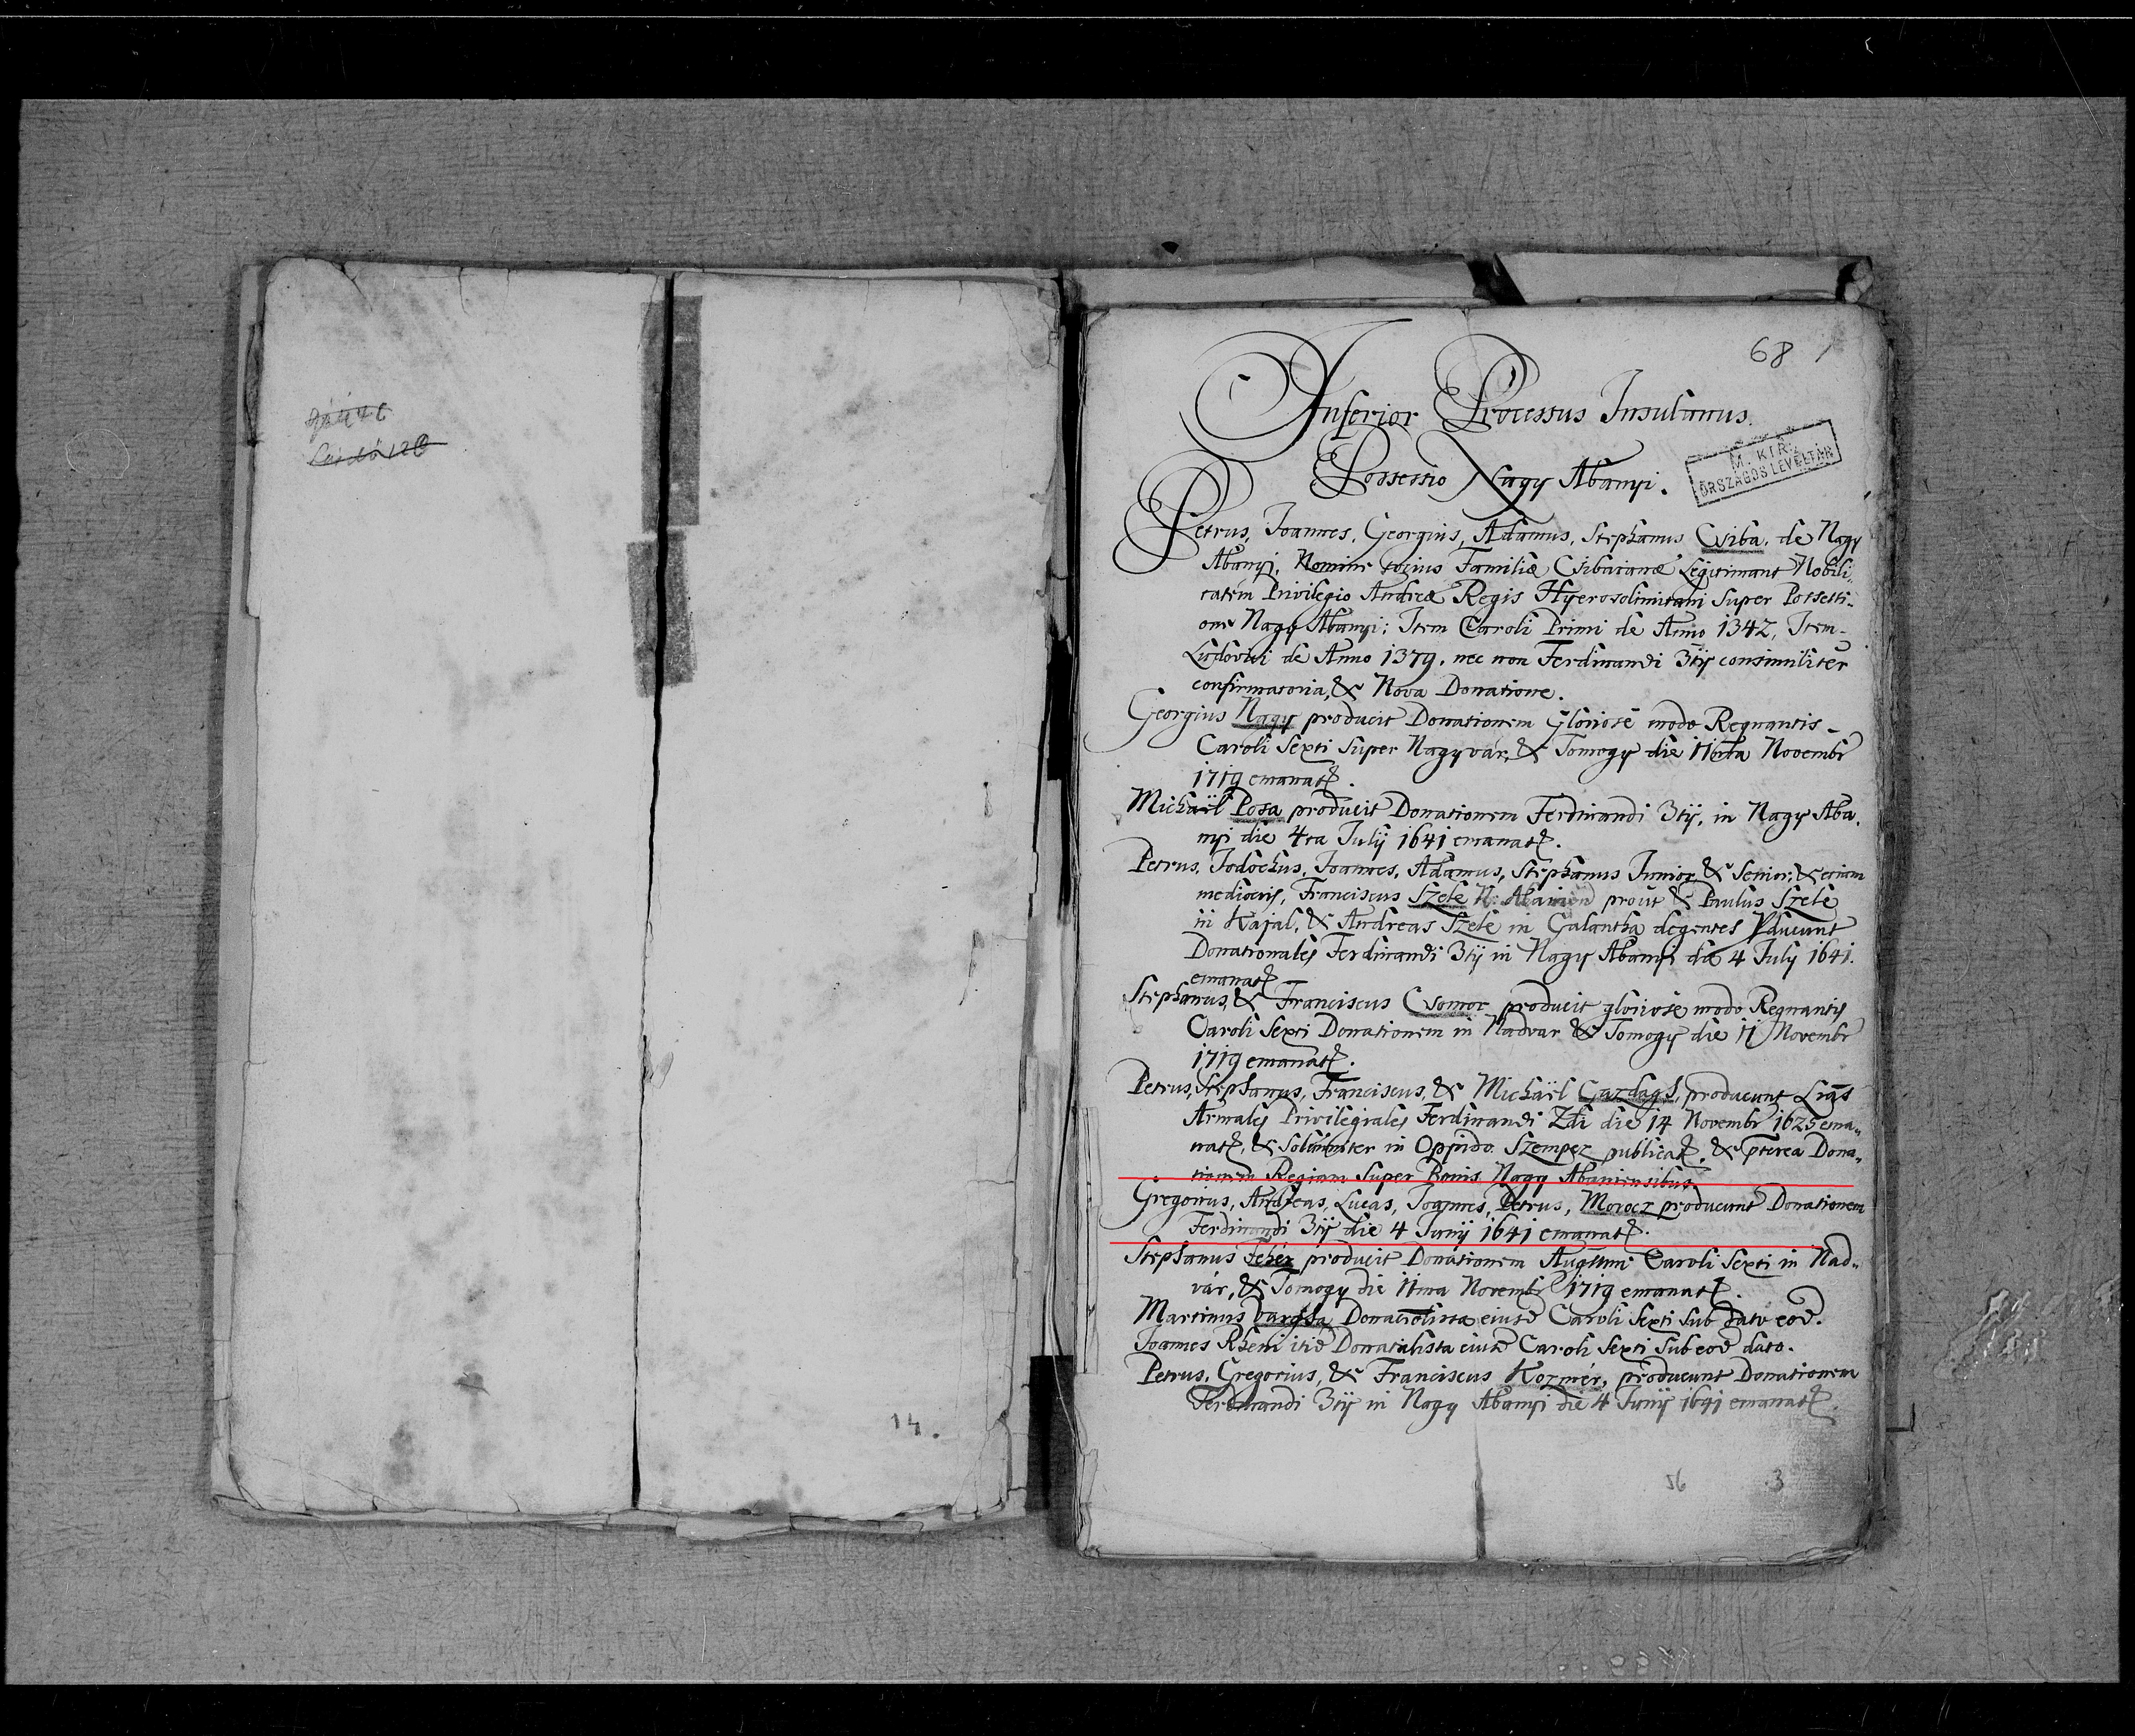 14.
68
Inferior Processus Insulanus.
Possessio Nagy Abanyi.
M. KIR.
ORSZÁGOS LEVÉLTÁR
Petrus, Joannes, Georgius, Adamus, Stephanus Csiba, de Nagy
Abanyi, Nomine totius Familiæ Csibaianæ Legitimant Nobili„
tatem Privilegio Andreæ Regis Hyerosolimitani Super Possessi„
one Nagy Abanyi; Item Caroli Primi de Anno 1342, Item
Ludovici de Anno 1379. nec non Ferdinandi 3tÿ consimiliter
confirmatoria, & Nova Donatione.
Georgius Nagy producit Donationem Gloriose modo Regnantis
Caroli Sexti Super Nagyvár, & Tomogy die 11 Novembr
1719 emanat.
Michaël Posa producit Donationem Ferdinandi 3tÿ, in Nagy Aba„
nyi die 4ta Julÿ 1641 emanat.
Petrus, Jodochus, Joannes, Adamus, Stephanus Junior & Senior, & etiam
mediocris, Franciscus Szele N. prout & Paulus Szele
in Kajal, & Andreas Szele in Galantha degentes producunt
Donationales Ferdinandi 3tÿ in Nagy Abanyi die 4 July 1641.
emanat.
Stephanus, & Franciscus Csomor producit gloriose modo Regnantis
Caroli Sexti Donationem in Nadvar & Tomogy die 11 Novembr
1719 emanat.
Petrus, Stephanus, Franciscus, & Michaël Gazdagh, producunt Lras
Armales Privilegiales Ferdinandi 2di die 14 Novembr 1625 ema„
nat, & Solemniter in Oppido Szempcz publicat. & pterea Dona„
tionem Regiam Super Bonis Nagy Abaniensibus
Gregorius, Andreas, Lucas, Joannes, Petrus, Morocz producunt Donationem
Ferdinandi 3tÿ die 4 Junÿ 1641 emanat.
Stephanus Fehér producit Donationem Augustmi Caroli Sexti in Nad„
vár, & Tomogy die 11ma Novembr 1719 emanat.
Martinus Vargha Donatiolista eiusd Caroli Sexti Sub dato eod.
Joannes Rheni itid Donatalista eiusd Caroli Sexti Sub eod dato.
Petrus, Gregorius, & Franciscus Kozmér, producunt Donationem
Ferdinandi 3tÿ in Nagy Abanyi die 4 Junÿ 1641 emanat.
56 3